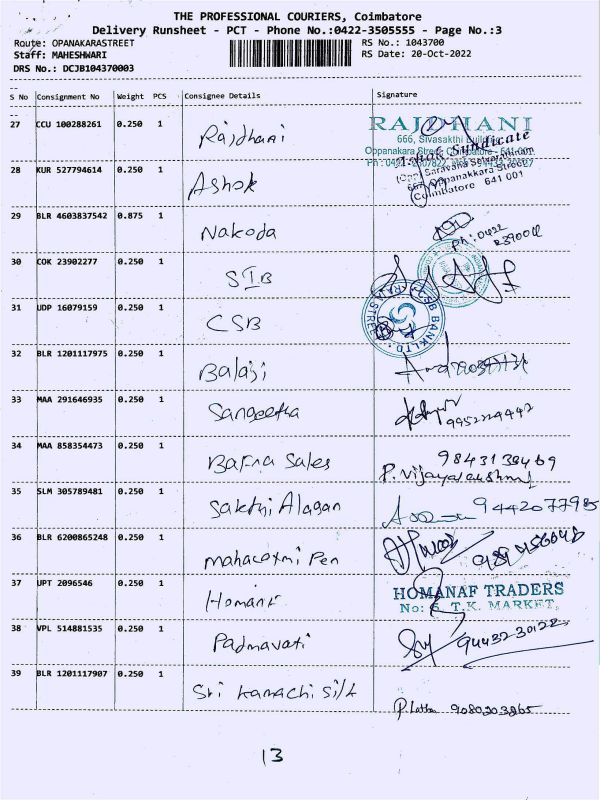 THE PROFESSIONAL COURIERS, Coimbatore
Delivery Runsheet - PCT - Phone No.:0422-3505555 - Page No.:3
Route: OPANAKARASTREET RS No.: 1043700
Staff: MAHESHWARI RS Date: 20-Oct-2022
DRS No.: DCJB104370003
S No Consignment No Weight PCS Consignee Details Signature
27 CCU 100288261 0.250 1 Rajdhani
RAJDHANI
666, Sivasakthi Building
Oppanakara Street, Coimbatore - 641 001
Ashok Syndicate
28 KUR 527794614 0.250 1 Ashok
(Opp) Saravana Selvarathinam
667, Oppanakkara Street
Coimbatore 641 001
29 BLR 4603837542 0.875 1 Nakoda
Ph: 0422
30 COK 23902277 0.250 1 SIB
31 UDP 16079159 0.250 1 CSB
CSB BANK LTD
32 BLR 1201117975 0.250 1 Balaji
33 MAA 291646935 0.250 1 Sangeetha
9952229442
34 MAA 858354473 0.250 1 Bafna Sales
P. Vijayalakshmi
35 SLM 305789481 0.250 1 Sakthi Alagan 9442077985
36 BLR 6200865248 0.250 1 mahalaxmi Pen
37 UPT 2096546 0.250 1 Homanf
HOMANAF TRADERS
No: 6, T.K. MARKET,
38 VPL 514881535 0.250 1 Padmavati 9443230122
39 BLR 1201117907 0.250 1 Sri Kamachi Silk
P. Latha 9080203265
13